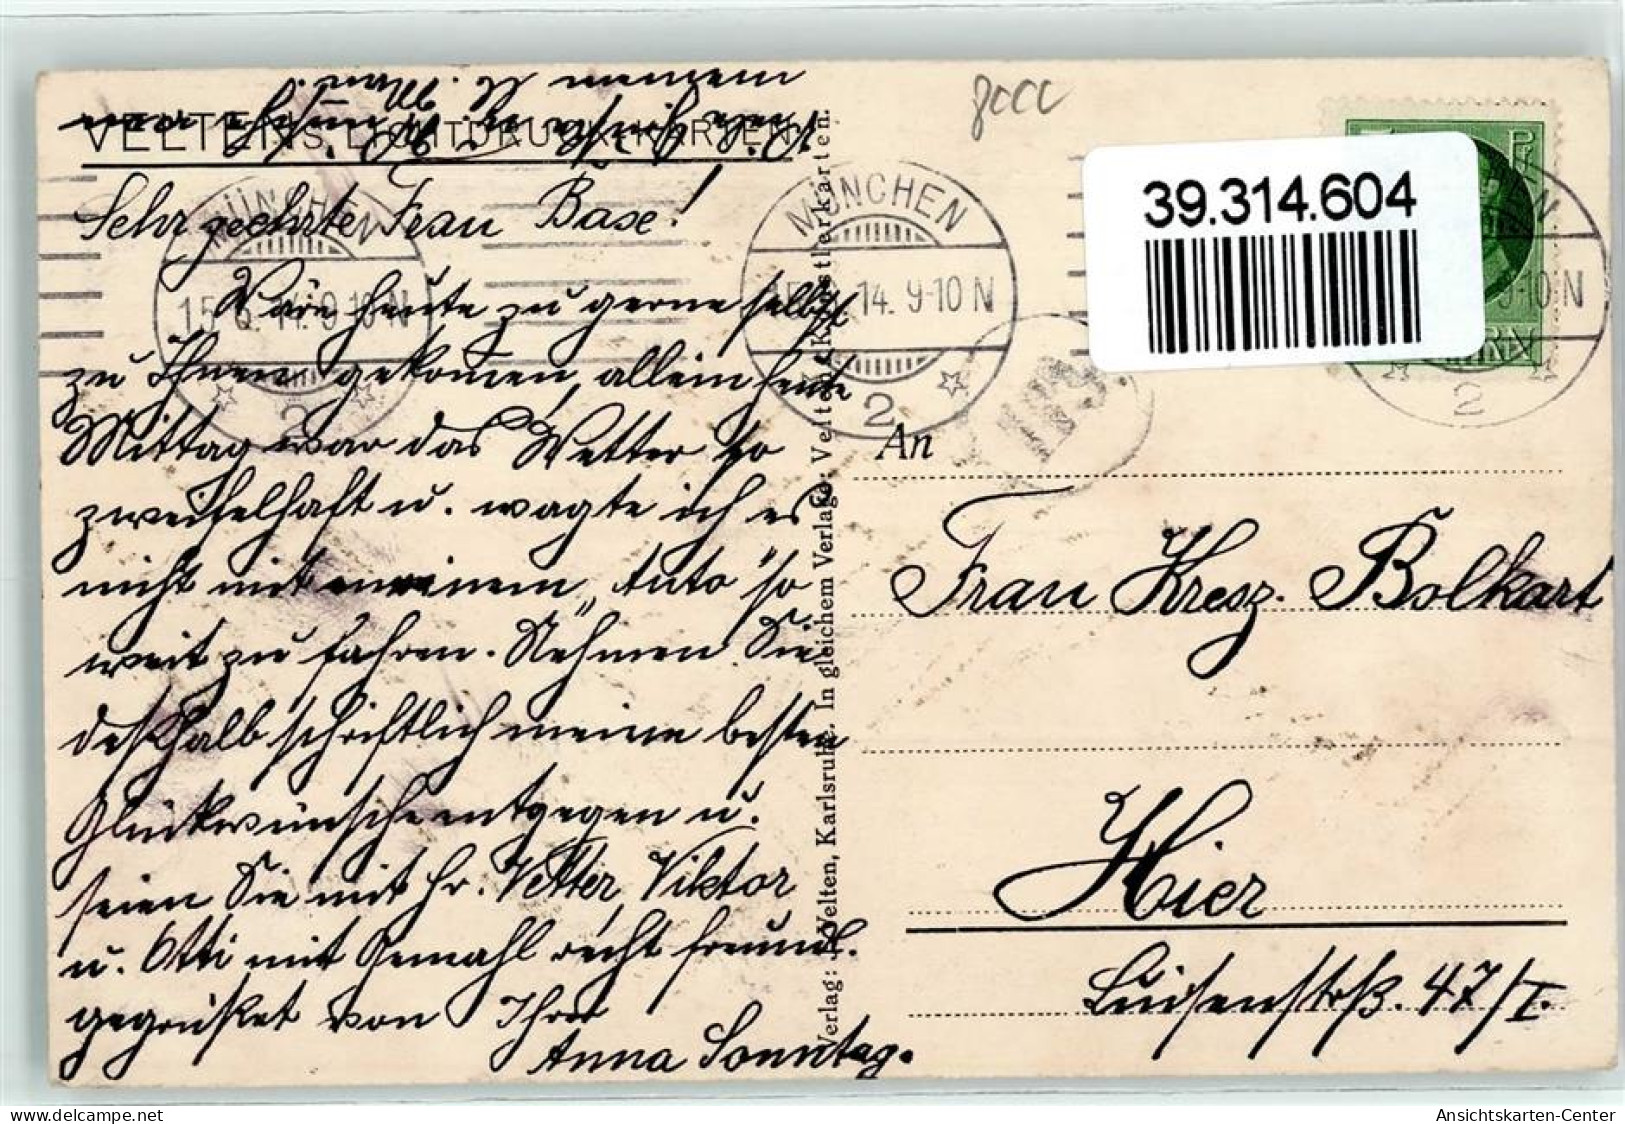 VELTEN'S LICHTDRUCK-KARTEN
Sehr geehrte Frau Base!
Wäre heute zu gerne selbst
zu Ihnen gekommen, allein heute
Mittag war das Wetter so
zweifelhaft u. wagte ich es
nicht mit meinem „Auto" so
weit zu fahren. Nehmen Sie
deßhalb schriftlich meine besten
Glückwünsche entgegen u.
seien Sie mit Hr. Vetter Viktor
u. Otti mit Gemahl recht freundl.
gegrüßet von Ihrer
Anna Sonntag.
meinem
Verlag: J. Velten, Karlsruhe. In gleichem Verlage: Velten's Künstlerkarten.
MÜNCHEN
15. 6. 14. 9-10 N
2
MÜNCHEN
14. 9-10 N
2
9-10 N
2
39.314.604
An
Frau Kresz. Bolkart
Hier
Luisenstrß. 47/I.
Ansichtskarten-Center